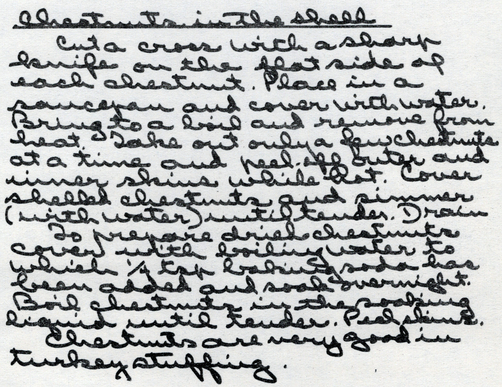 Chestnuts in the shell
Cut a cross with a sharp
knife on the flat side of
each chestnut. Place in a
saucepan and cover with water.
Bring to a boil and remove from
heat. Take out only a few chestnuts
at a time and peel off outer and
inner skins while hot. Cover
shelled chestnuts and simmer
(with water) until tender. Drain
To prepare dried chestnuts
cover with boiling water to
which ¼ tsp baking soda has
been added and soak overnight.
Boil chestnuts in the soaking
liquid until tender. Peel skins.
Chestnuts are very good in
turkey stuffing.